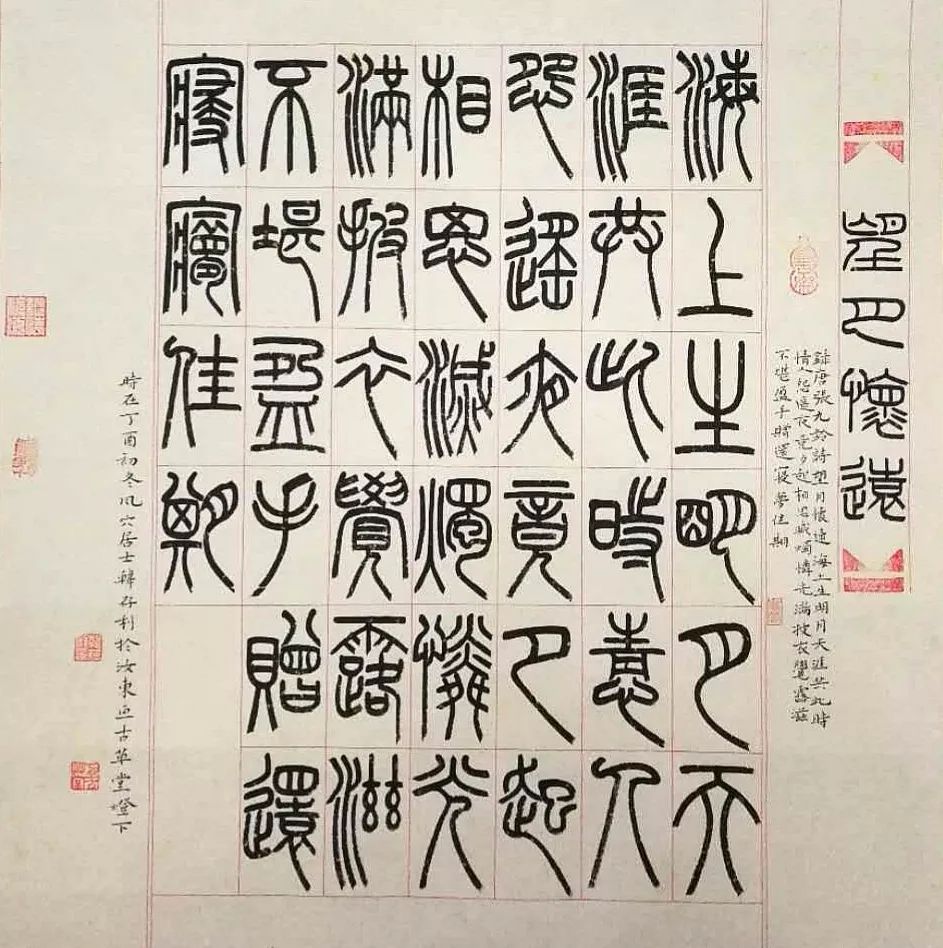 望月懷遠
錄唐張九齡詩望月懷遠海上生明月天涯共此時
情人怨遙夜竟夕起相思滅燭憐光滿披衣覺露滋
不堪盈手贈還寢夢佳期
海上生明月天
涯共此時情人
怨遙夜竟夕起
相思滅燭憐光
滿披衣覺露滋
不堪盈手贈還
寢夢佳期
時在丁酉初冬風穴居士韓存利於汝東古草堂燈下